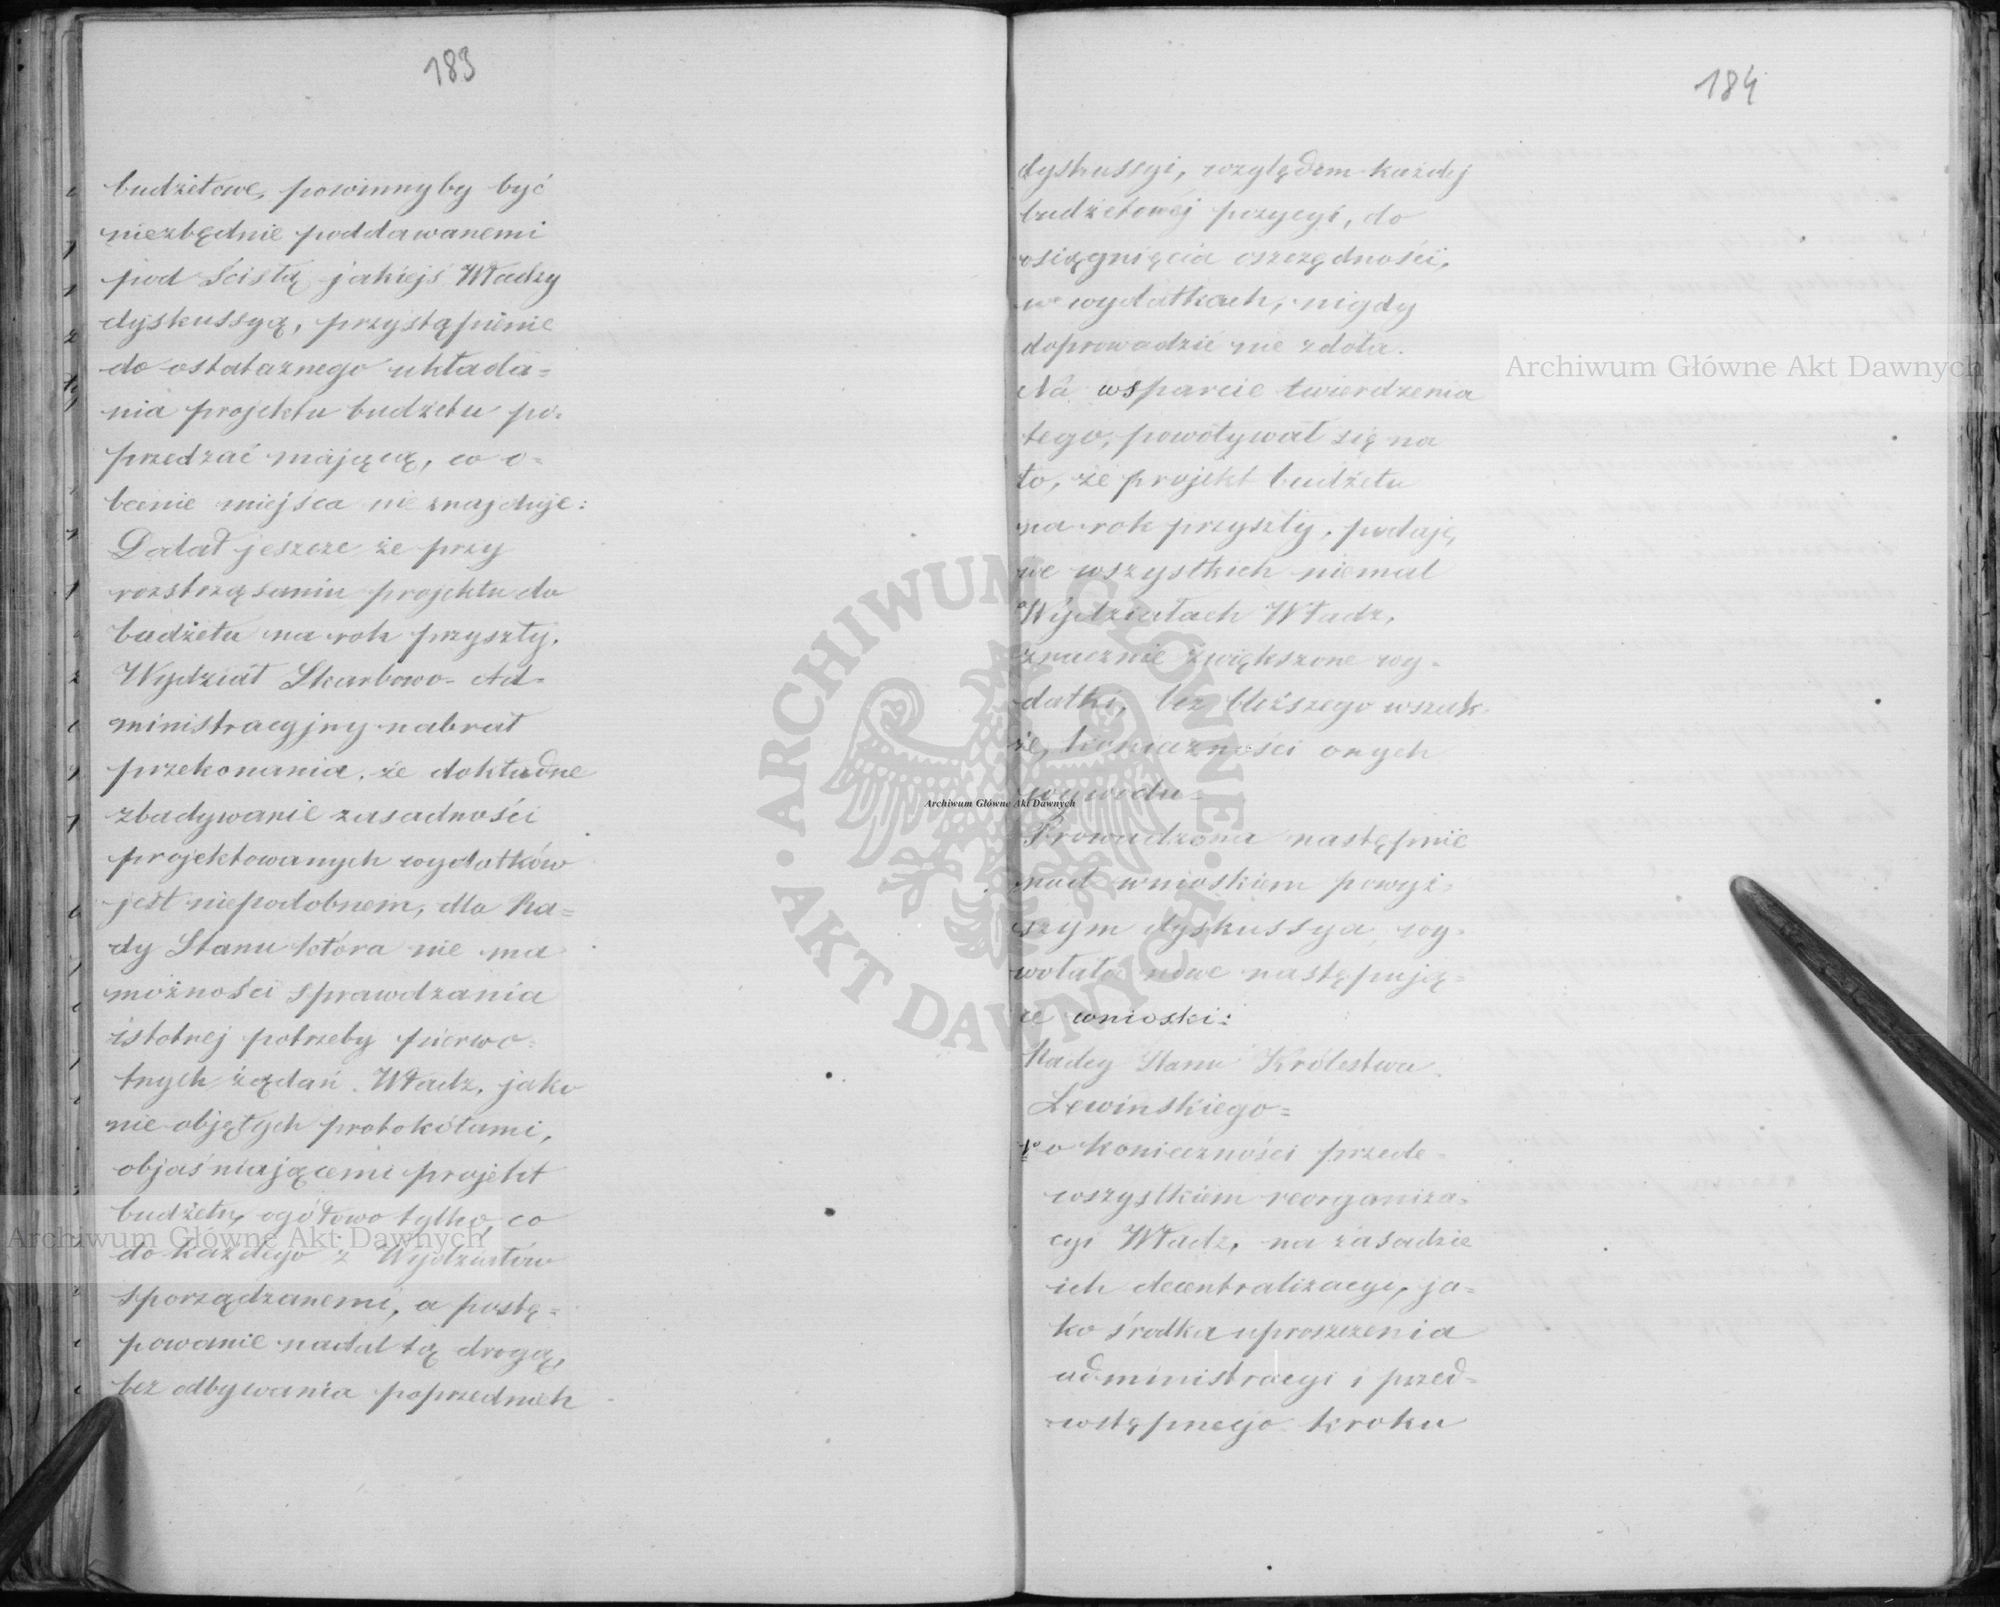 183
budżetowe, powinnyby być
niezbędnie poddawanemi
pod ścisłą jakiejś Władzy
dyskussyą, przystąpienie
do ostatecznego układa=
nia projektu budżetu po=
przedzać mającą, co o=
becnie miejsca nie znajduje:
Dodał jeszcze że przy
rozstrząsaniu projektu do
budżetu na rok przyszły,
Wydział Skarbowo-Ad=
ministracyjny nabrał
przekonania, że dokładne
zbadywanie zasadności
projektowanych wydatków
jest niepodobnem, dla Ra=
dy Stanu która nie ma
możności sprawdzania
istotnej potrzeby pierwo=
tnych żądań Władz, jako
nie objętych protokółami,
objaśniającemi projekt
budżetu, ogółowo tylko, co
do każdego z Wydziałów
sporządzanemi, a postę=
powanie nadal tą drogą,
bez odbywania poprzednich
184
dyskussyi, względem każdej
budżetowej pozycyi, do
osiągnięcia oszczędności,
w wydatkach, nigdy
doprowadzić nie zdoła.
Na wsparcie twierdzenia
tego, powoływał się na
to, że projekt budżetu
na rok przyszły, podaje,
we wszystkich niemal
Wydziałach Władz,
znacznie zwiększone wy=
datki, bez bliższego wszak=
że, konieczności onych
wywodu=
Prowadzona następnie
nad wnioskiem powyż=
szym dyskussya, wy=
wołała nowe następują=
ce wnioski:
Radcy Stanu Królestwa
Lewińskiego=
1º o konieczności przede=
wszystkiem reorganiza=
cyi Władz, na zasadzie
ich decentralizacyi, ja=
ko środka uproszczenia
administracyi i przed=
wstępnego kroku
Archiwum Główne Akt Dawnych
Archiwum Główne Akt Dawnych
Archiwum Główne Akt Dawnych
ARCHIWUM GŁÓWNE · AKT DAWNYCH ·